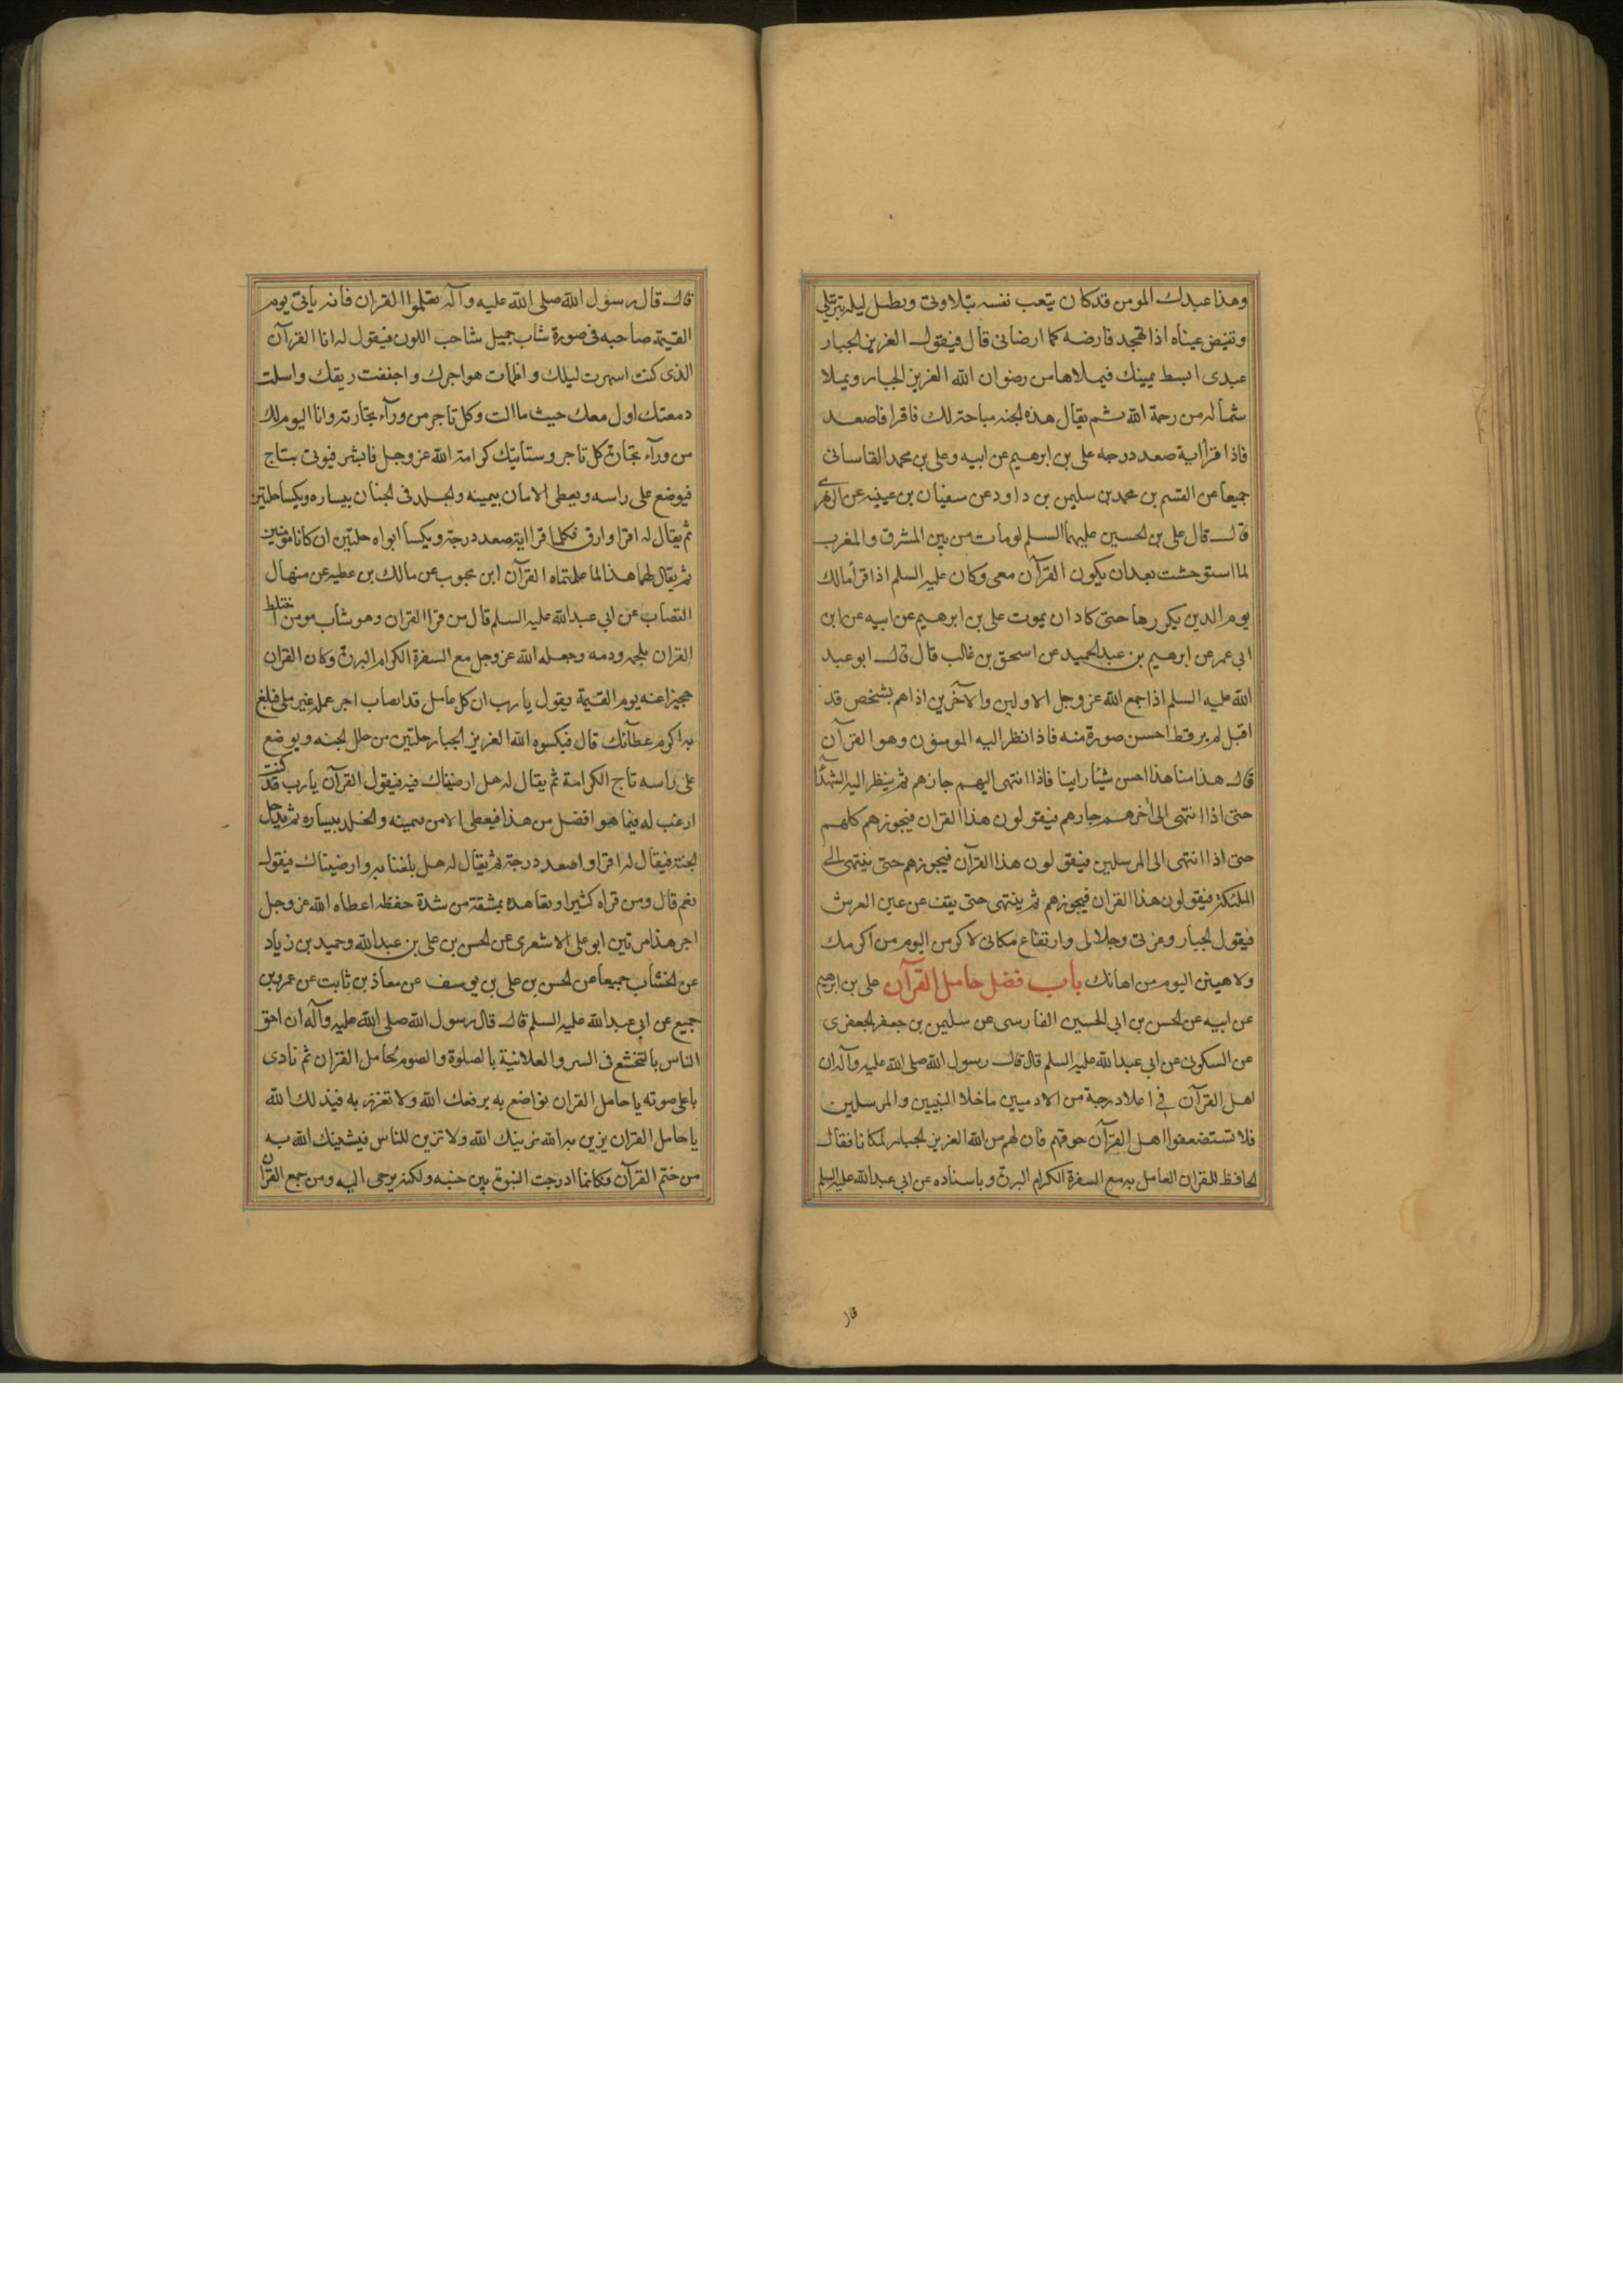 وهذا عبدك المومن قد كان يتعب نفسه بتلاوتى ويطيل ليله بترتيلى
وتفيض عيناه اذا تهجد فارضه كما ارضانى قال فيقول العزيز الجبار
عبدى ابسط يمينك فيملاها من رضوان الله العزيز الجبار ويملا
شماله من رحمة الله ثم يقال هذه الجنه مباحة لك فاقرا فاصعد
فاذا قرا اية صعد درجه على بن ابرهيم عن ابيه وعلى بن محمد القاسانى
جميعا عن القسم بن محمد بن سليمن بن داود عن سفيان بن عيينه عن الزهرى
قال قال على بن الحسين عليهما السلم لو مات من بين المشرق والمغرب
لما استوحشت بعد ان يكون القرآن معى وكان عليه السلم اذا قرأ مالك
يوم الدين يكررها حتى كاد ان يموت على بن ابرهيم عن ابيه عن ابن
ابي عمر عن ابرهيم بن عبد الحميد عن اسحق بن غالب قال قال ابو عبد
الله عليه السلم اذا جمع الله عز وجل الاولين والآخرين اذاهم بشخص قد
اقبل لم ير قط احسن صورة منه فاذا نظر اليه المومنون وهو القرآن
قال هذا منا هذا احسن شئ راينا فاذا انتهى اليهم جازهم ثم ينظر اليه الشهدآ
حتى اذا انتهى الى اخرهم جازهم فيقولون هذا القران فيجوزهم كلهم
حتى اذا انتهى الى المرسلين فيقولون هذا القرآن فيجوزهم حتى ينتهى الى
الملئكة فيقولون هذا القران فيجوزهم ثم ينتهى حتى يقف عن عين العرش
فيقول الجبار وعزتى وجلالى وارتفاع مكانى لاكرمن اليوم من اكرمك
ولاهينن اليوم من اهانك باب فضل حامل القرآن على بن ابرهيم
عن ابيه عن الحسن بن ابي الحسين الفارسى عن سليمن بن جعفر الجعفرى
عن السكونى عن ابي عبد الله عليه السلم قال قال رسول الله صلى الله عليه وآله ان
اهل القرآن في اعلا درجة من الادميين ما خلا النبيين والمرسلين
فلا تستضعفوا اهل القرآن حوقهم فان لهم من الله العزيز الجبار لمكانا فقال
الحافظ للقران العامل به مع السفرة الكرام البررة وباسناده عن ابي عبد الله عليه السلم
قال
قال قال رسول الله صلى الله عليه وآله تعلموا القران فانه ياتى يوم
القيمة صاحبه في صورة شاب جميل شاحب اللون فيقول له انا القرآن
الذى كنت اسهرت ليلك واظمات هواجرك واجففت ريقك واسلت
دمعتك اول معك حيث ما الت وكل تاجر من ورآء تجارته وانا اليوم لك
من ورآء تجارة كل تاجر وستاتيك كرامة الله عز وجل فابشر فيوتى بتاج
فيوضع على راسه ويعطى الامان بيمينه والخلد فى الجنان بيساره ويكسا حلتين
ثم يقال له اقرا وارق فكلما قرا اية صعد درجة ويكسا ابواه حلتين ان كانا مؤمنين
ثم يقال لهما هذا لما علمتماه القرآن ابن محبوب عن مالك بن عطيه عن منهال
القصاب عن ابي عبد الله عليه السلم قال من قرا القران وهو شاب مومن اختلط
القران بلحمه ودمه وجعله الله عز وجل مع السفرة الكرام البررة وكان القران
حجيزا عنه يوم القيمة يقول يا رب ان كل عامل قد اصاب اجر عمله غير عملى فبلغ
به اكرم عطآئك قال فيكسوه الله العزيز الجبار حلتين من حلل الجنه ويوضع
على راسه تاج الكرامة ثم يقال له هل ارضيناك فيه فيقول القرآن يا رب قد كنت
ارغب له فيما هو افضل من هذا فيعطى الامن بيمينه والخلد بيساره ثم يدخل
الجنة فيقال له اقرا واصعد درجة ثم يقال له هل بلغنا به وارضيناك فيقول
نعم قال ومن قراه كثيرا وتعاهده بمشقة من شدة حفظه اعطاه الله عز وجل
اجر هذا مرتين ابو على الاشعرى عن الحسن بن على بن عبد الله وحميد بن زياد
عن الخشاب جميعا عن الحسن بن على بن يوسف عن معاذ بن ثابت عن عمرو بن
جميع عن ابي عبد الله عليه السلم قال قال رسول الله صلى الله عليه وآله ان احق
الناس بالتخشع فى السر والعلانية بالصلوة والصوم لحامل القران ثم نادى
باعلى صوته يا حامل القران تواضع به يرفعك الله ولا تعزز به فيذلك الله
يا حامل القران تزين به الله يزينك الله ولا تزين للناس فيشينك الله به
من ختم القرآن فكانما ادرجت النبوة بين جنبه ولكنه يوحى اليه ومن جمع القران